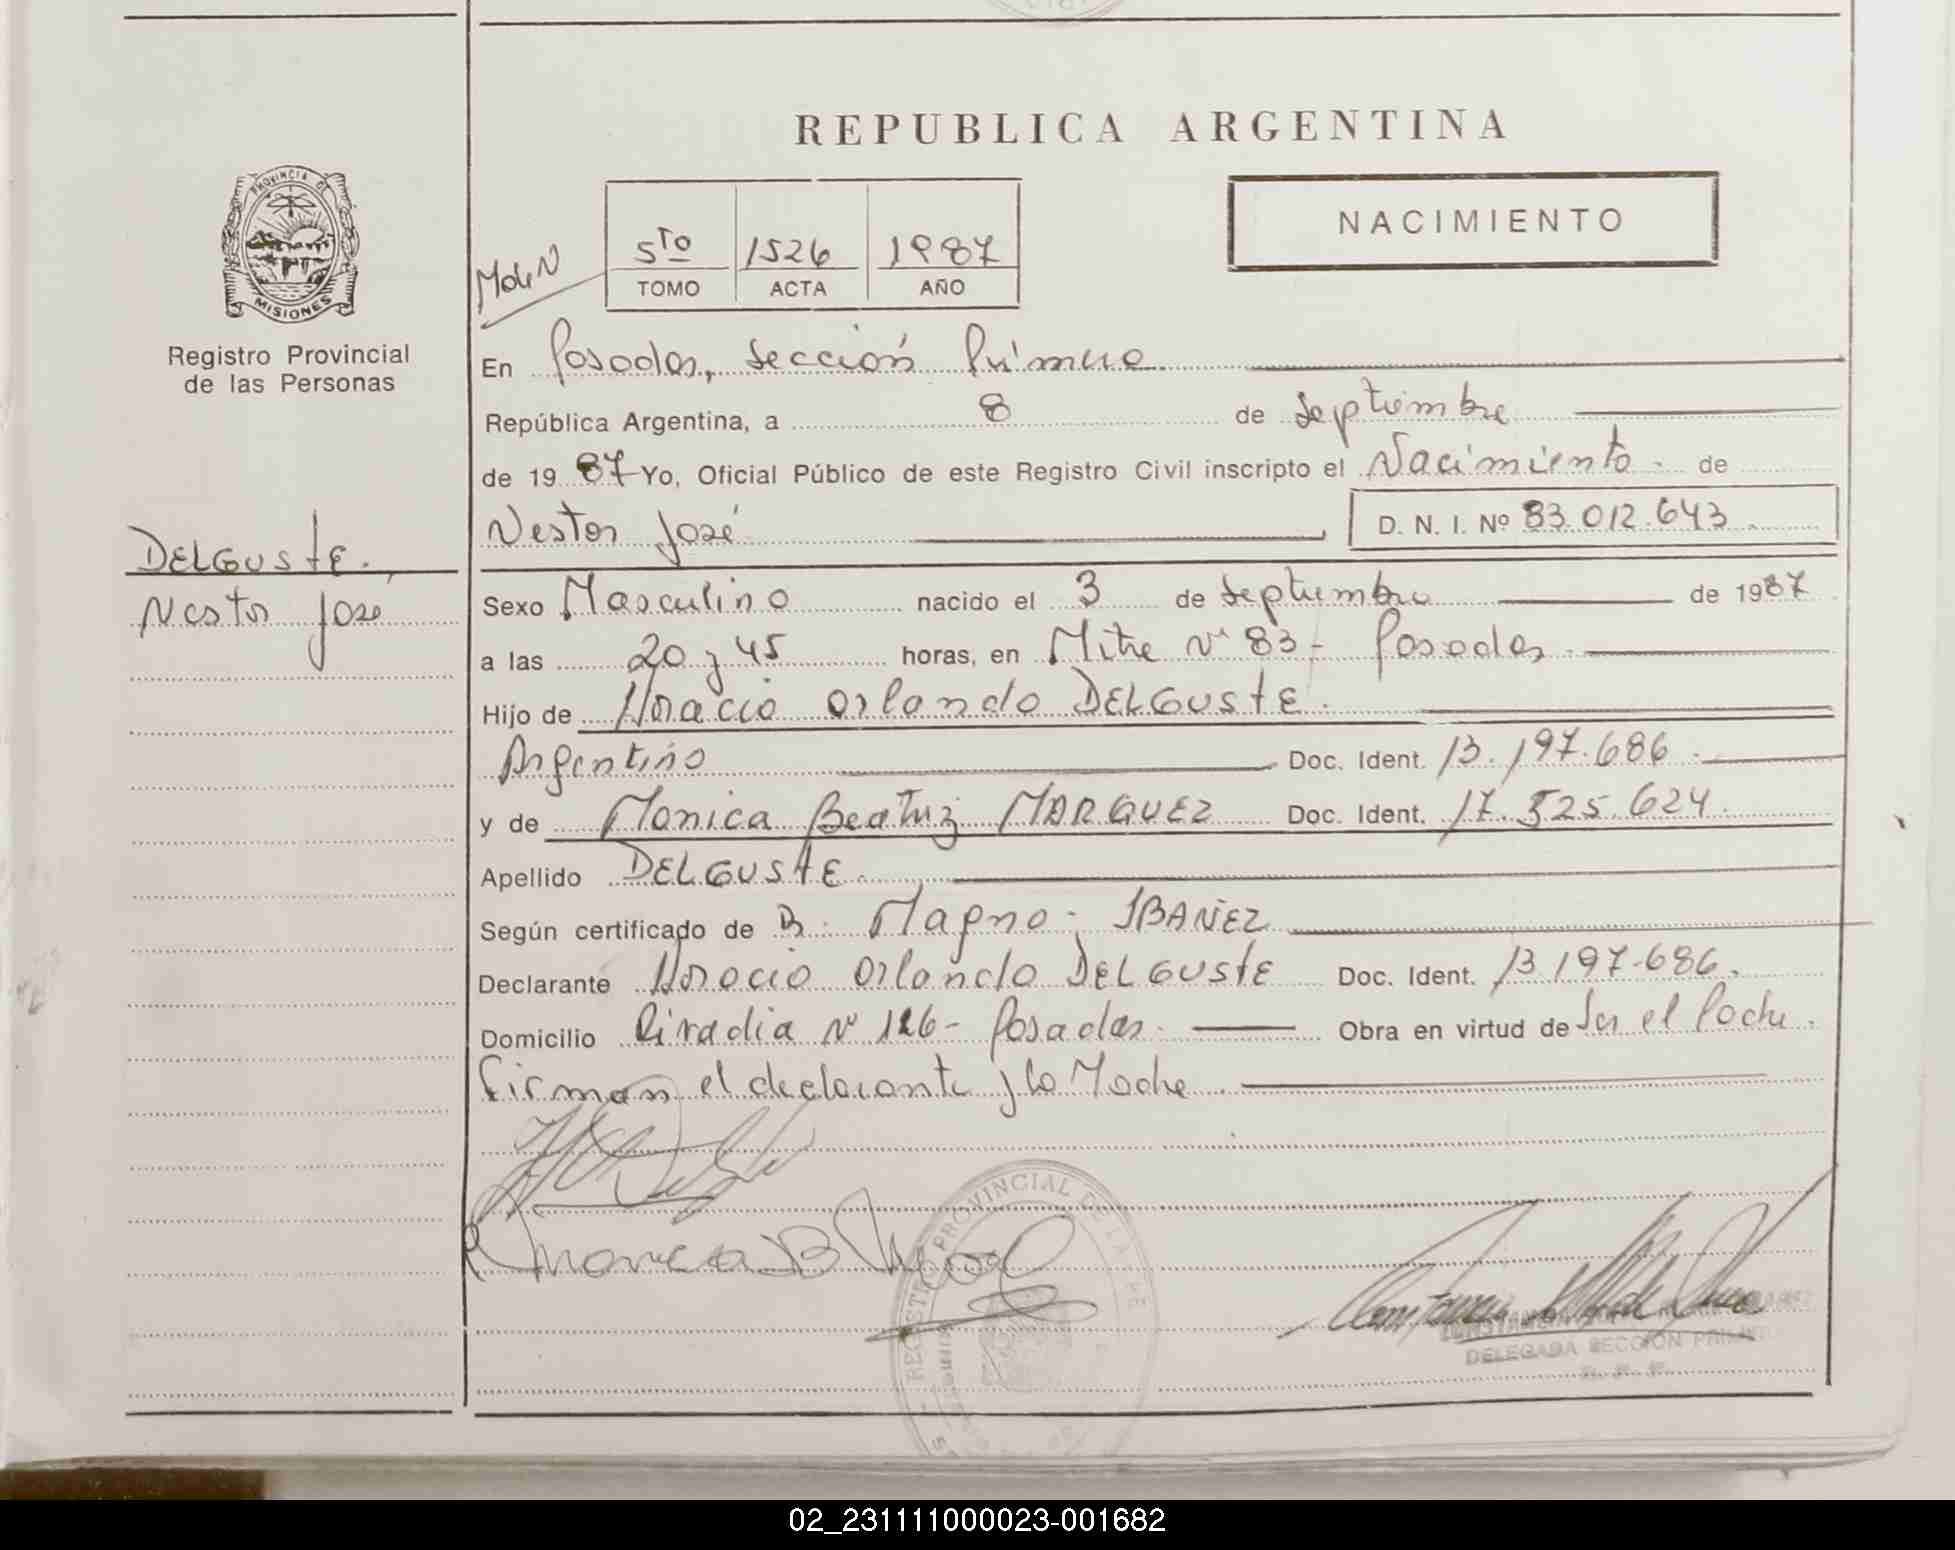 REPUBLICA ARGENTINA
NACIMIENTO
PROVINCIA DE
MISIONES
Registro Provincial
de las Personas
5to 1526 1987
TOMO ACTA AÑO
En Posadas, Sección Primera
República Argentina, a 8 de Septiembre
de 19 87 Yo, Oficial Público de este Registro Civil inscripto el Nacimiento de
Nestor José D. N. I. Nº 33.012.643
DELGUSTE.
Nestor José
Sexo Masculino nacido el 3 de Septiembre de 1987
a las 20 y 45 horas, en Mitre Nº 83 - Posadas
Hijo de Horacio Orlando DELGUSTE.
Argentino Doc. Ident. 13.197.686
y de Monica Beatriz MARQUEZ Doc. Ident. 17.525.624
Apellido DELGUSTE
Según certificado de Magno. IBAÑEZ
Declarante Horacio Orlando DELGUSTE Doc. Ident. 13.197.686.
Domicilio Nº 126 - Posadas. Obra en virtud de Ser el Padre.
Firman el declarante y la Madre
REGISTRO PROVINCIAL DE LAS PE
DELEGADA SECCION
02_231111000023-001682